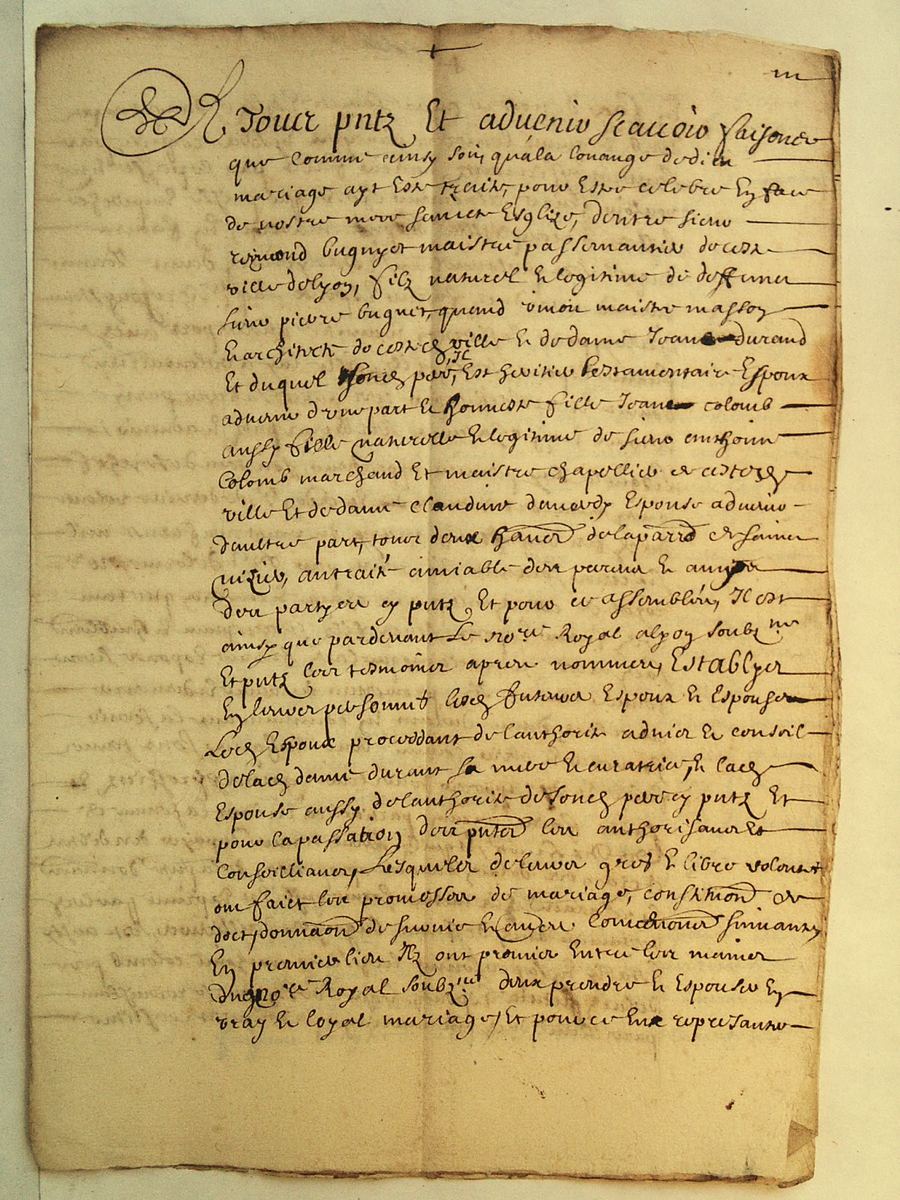 A Tous pntz Et advenir Scavoir faisons
que comme ainsy soit qu'a la louange de dieu
mariage ayt Esté traité, pour Estre celebré En face
de nostre mere saincte Esglize, d'entre sieur
bugnyet maistre passementier de ceste
ville de lyon, filz naturel & legitime de deffunct
sieur pierre bugniet, quand vivoit maistre masson
& architecte de ceste ville & de dame Jeanne durand
Et duquel son père, Est heritier testamentaire Espoux
advenir d'une part & honneste fille Jeanne colomb
aussy fille naturelle & legitime de sieur anthoine
Colomb marchand Et maistre chapellier de ceste
ville Et de dame Claudine Espouse advenir
d'aultre part, tous deux de la parr de sainct
nizier, au traité amiable des parens & amys
des partyes cy pntz, Et pour ce assemblés, Il est
ainsy que pardevant Le no.re Royal a lyon soubz.né
Et pntz les tesmoins apres nommés, Establyes
En leurs personnes lesd futurs Espoux & Espouse
Led Espoux procedant de l'authorité advis & conseil
de lad dame durant sa mere & curatrice, & lad
Espouse aussy de l'authorité de son père cy pntz Et
pour la passation des pntes les authorisans Et
Conseillians, Lesquels de leurs gréz & libre volonté
ont faict les promesses de mariage, constituon de
dot, donnaon de survie & suivans
En premier lieu Ilz ont promis Entre les mains
no.re Royal soubz.né d'eux prendre & Espouser En
vray & loyal mariage, Et pour ce Eux representer